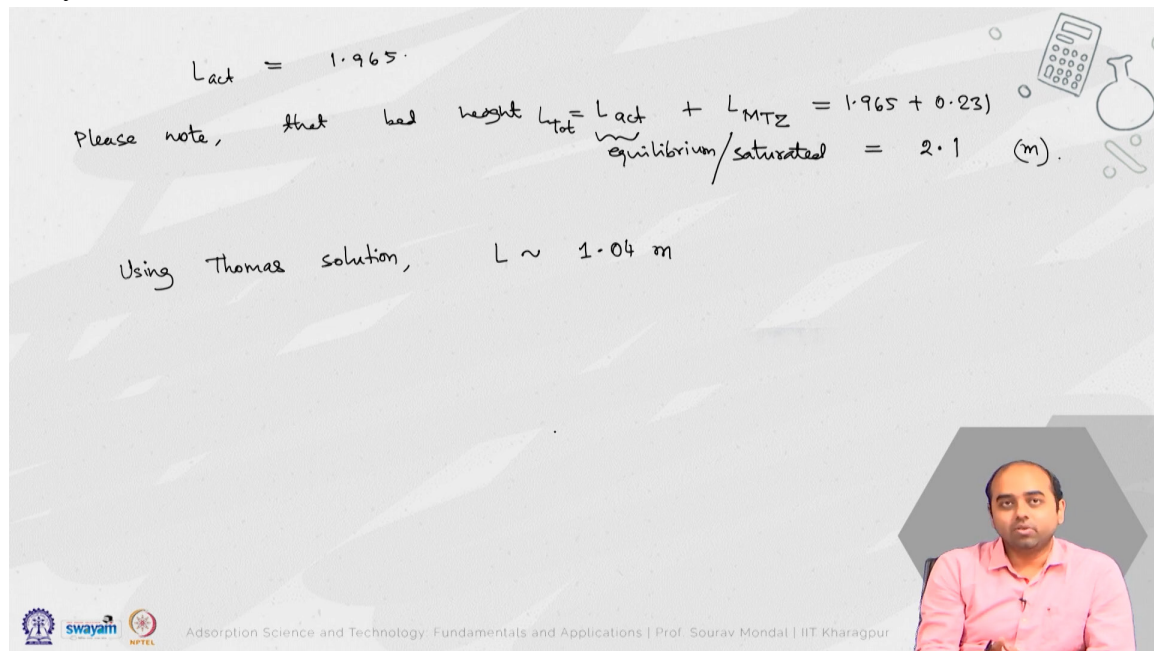 Lact = 1.965.
Please note, that bed height LTot = Lact + LMTZ = 1.965 + 0.23)
equilibrium/saturated = 2.1 (m).
Using Thomas solution, L ~ 1.04 m
swayam NPTEL Adsorption Science and Technology: Fundamentals and Applications | Prof. Sourav Mondal | IIT Kharagpur